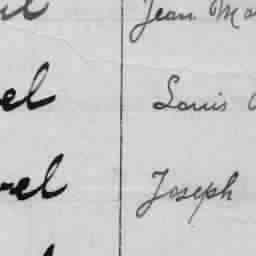 Jean
el Louis
rel Joseph